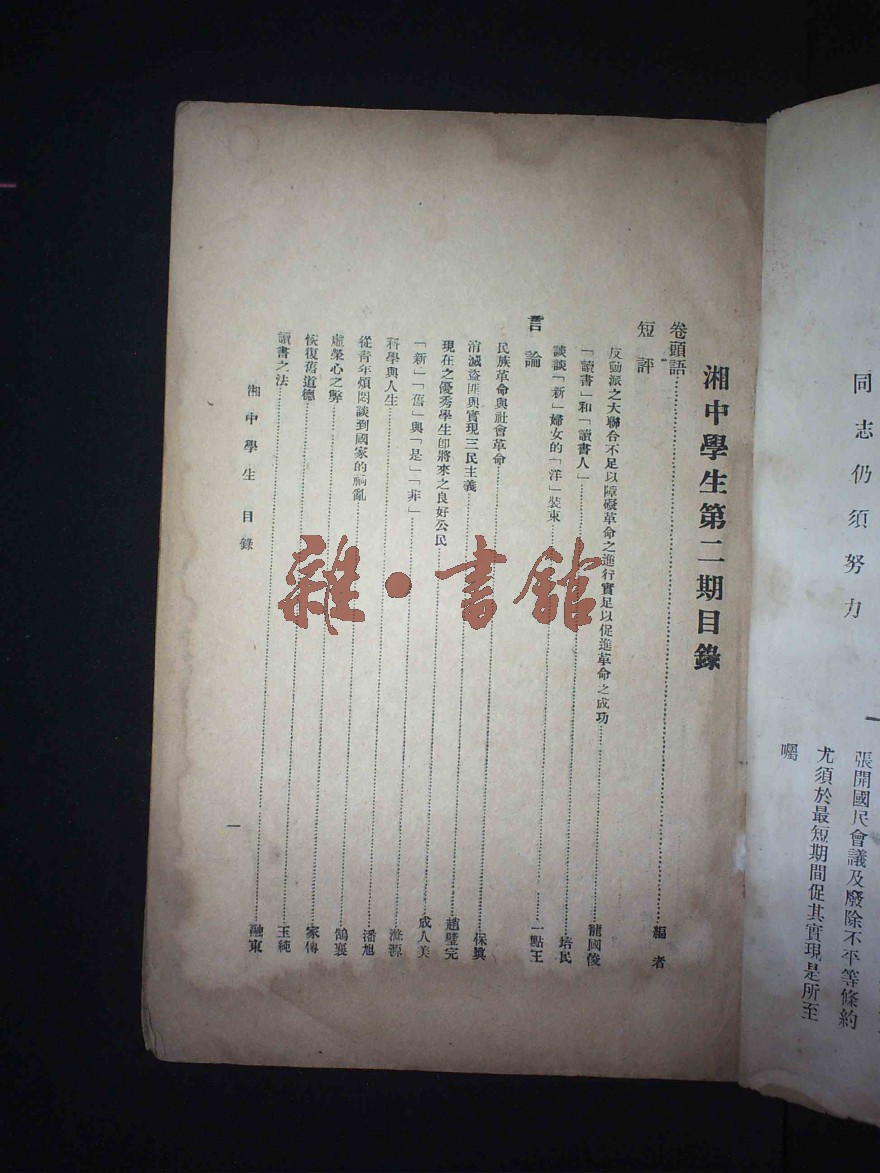 同志仍須努力
張開國民會議及廢除不平等條約
尤須於最短期間促其實現是所至
囑
湘中學生第二期目錄
卷頭語……編者
短評
反動派之大聯合不足以障礙革命之進行實足以促進革命之成功……龍國俊
「讀書」和「讀書人」……培民
談談「新」婦女的「洋」裝束……一點王
言論
民族革命與社會革命……保眞
消滅盜匪與實現三民主義……趙璧完
現在之優秀學生卽將來之良好公民……成人美
「新」「舊」與「是」「非」……滋源
科學與人生……潘旭
從青年煩悶談到國家的禍亂……鵠襄
虛榮心之弊……家傳
恢復舊道德……玉純
讀書之法……融東
湘中學生 目錄
一
雜·書館